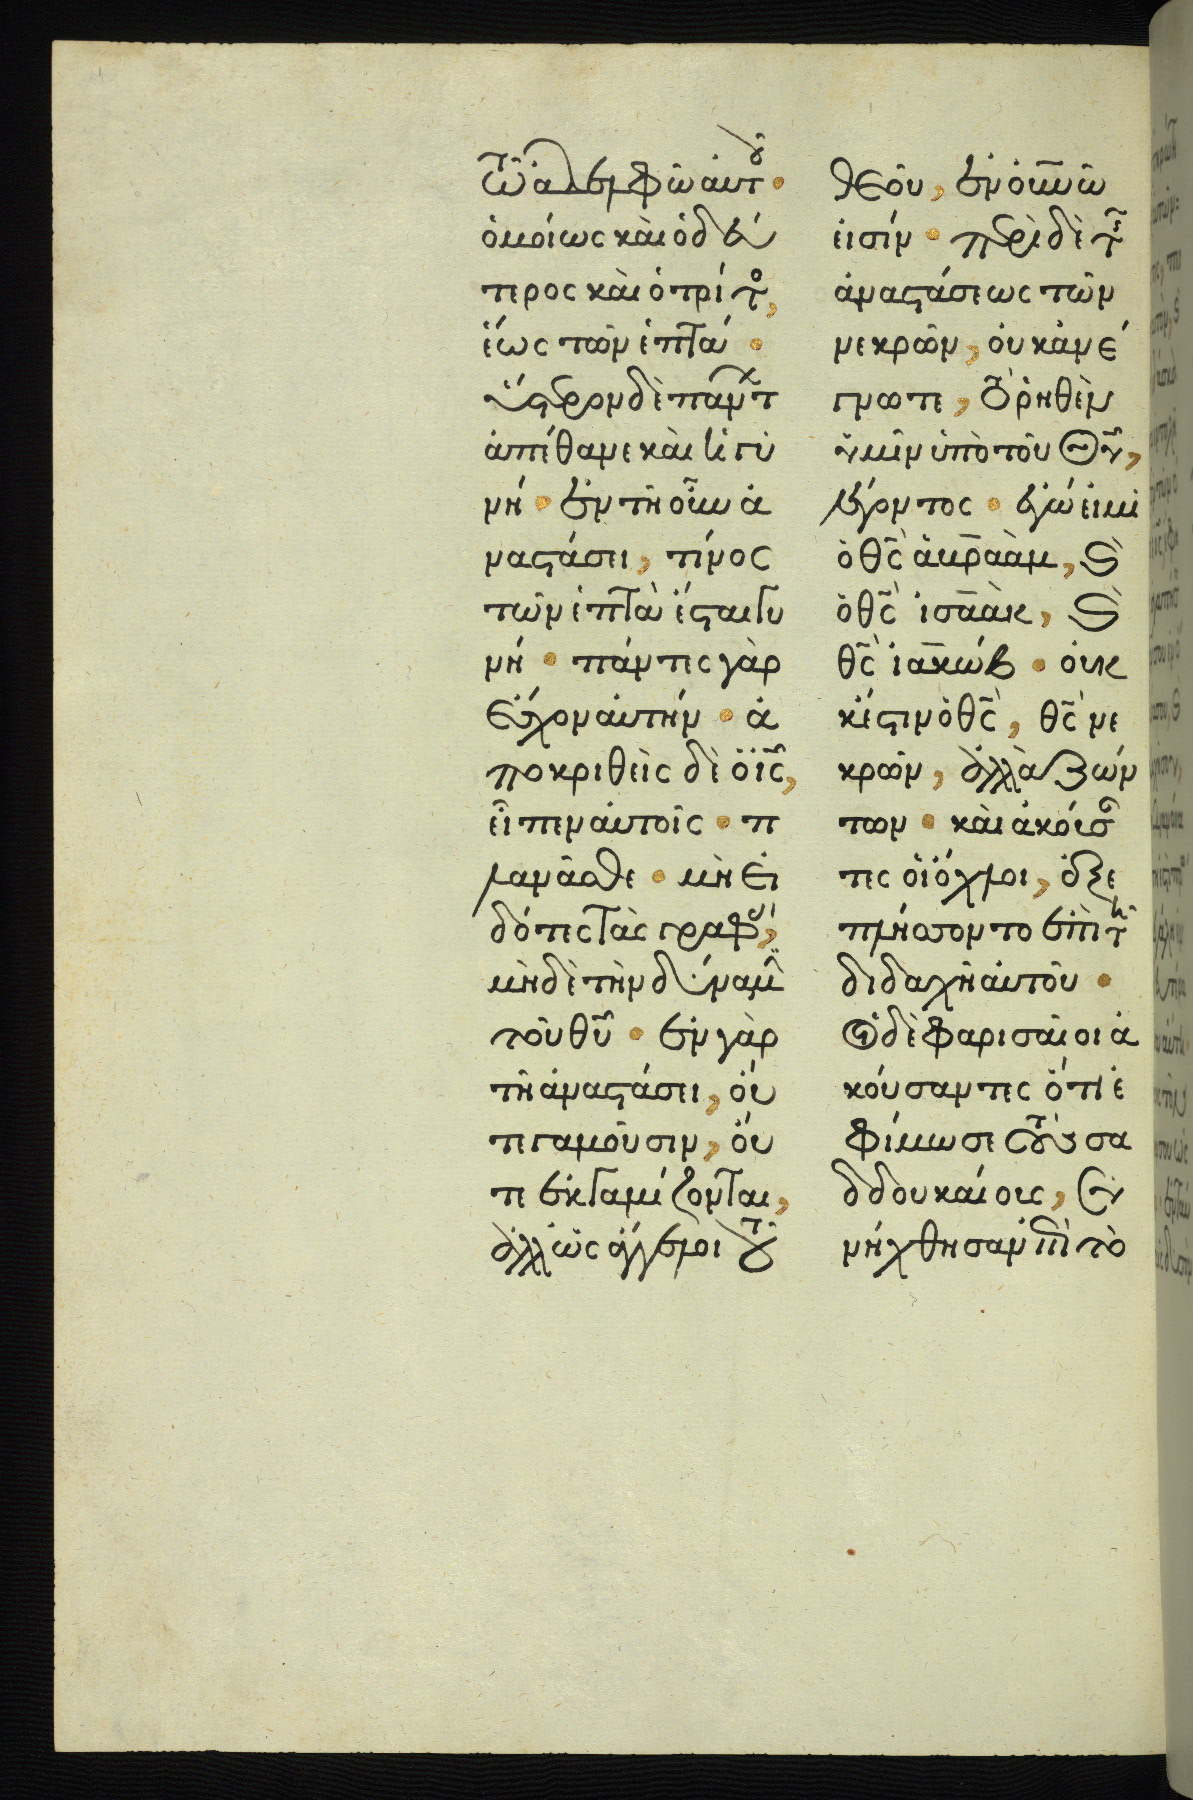 τῷ ἀδελφῷ αὐτοῦ.
ὁμοίως καὶ ὁ δεύ
τερος καὶ ὁ τρίτος,
ἕως τῶν ἑπτά.
ὕστερον δὲ πάντων
ἀπέθανε καὶ ἡ γυ
νή. ἐν τῇ οὖν ἀ
ναστάσει, τίνος
τῶν ἑπτὰ ἔσται γυ
νή. πάντες γὰρ
ἔσχον αὐτήν. ἀ
ποκριθεὶς δὲ ὁ ἰς̅,
εἶπεν αὐτοῖς. π
λανᾶσθε. μὴ εἰ
δότες τὰς γραφάς,
μηδὲ τὴν δύναμιν
τοῦ θυ̅. ἐν γὰρ
τῇ ἀναστάσει, οὔ
τε γαμοῦσιν, οὔ
τε ἐκγαμίζονται,
ἀλλ' ὡς ἄγγελοι τοῦ
θεοῦ, ἐν οὐ̅νω̅
εἰσίν. περὶ δὲ τῆς
ἀναστάσεως τῶν
νεκρῶν, οὐκ ἀνέ
γνωτε, τὸ ῥηθὲν
ὑμῖν ὑπὸ τοῦ θυ̅,
λέγοντος. ἐγώ εἰμι
ὁ θς̅ ἀβραὰμ, καὶ
ὁ θς̅ ἰσαὰκ, καὶ ὁ
θς̅ ἰακώβ. οὐκ
ἔστιν ὁ θς̅, θς̅ νε
κρῶν, ἀλλὰ ζών
των. καὶ ἀκούσαν
τες οἱ ὄχλοι, ἐξε
πλήσσοντο ἐπὶ τῇ
διδαχῇ αὐτοῦ.
Οἱ δὲ φαρισαῖοι ἀ
κούσαντες ὅτι ἐ
φίμωσε τοὺς σα
δδουκαίους, συ
νήχθησαν ἐπὶ τὸ